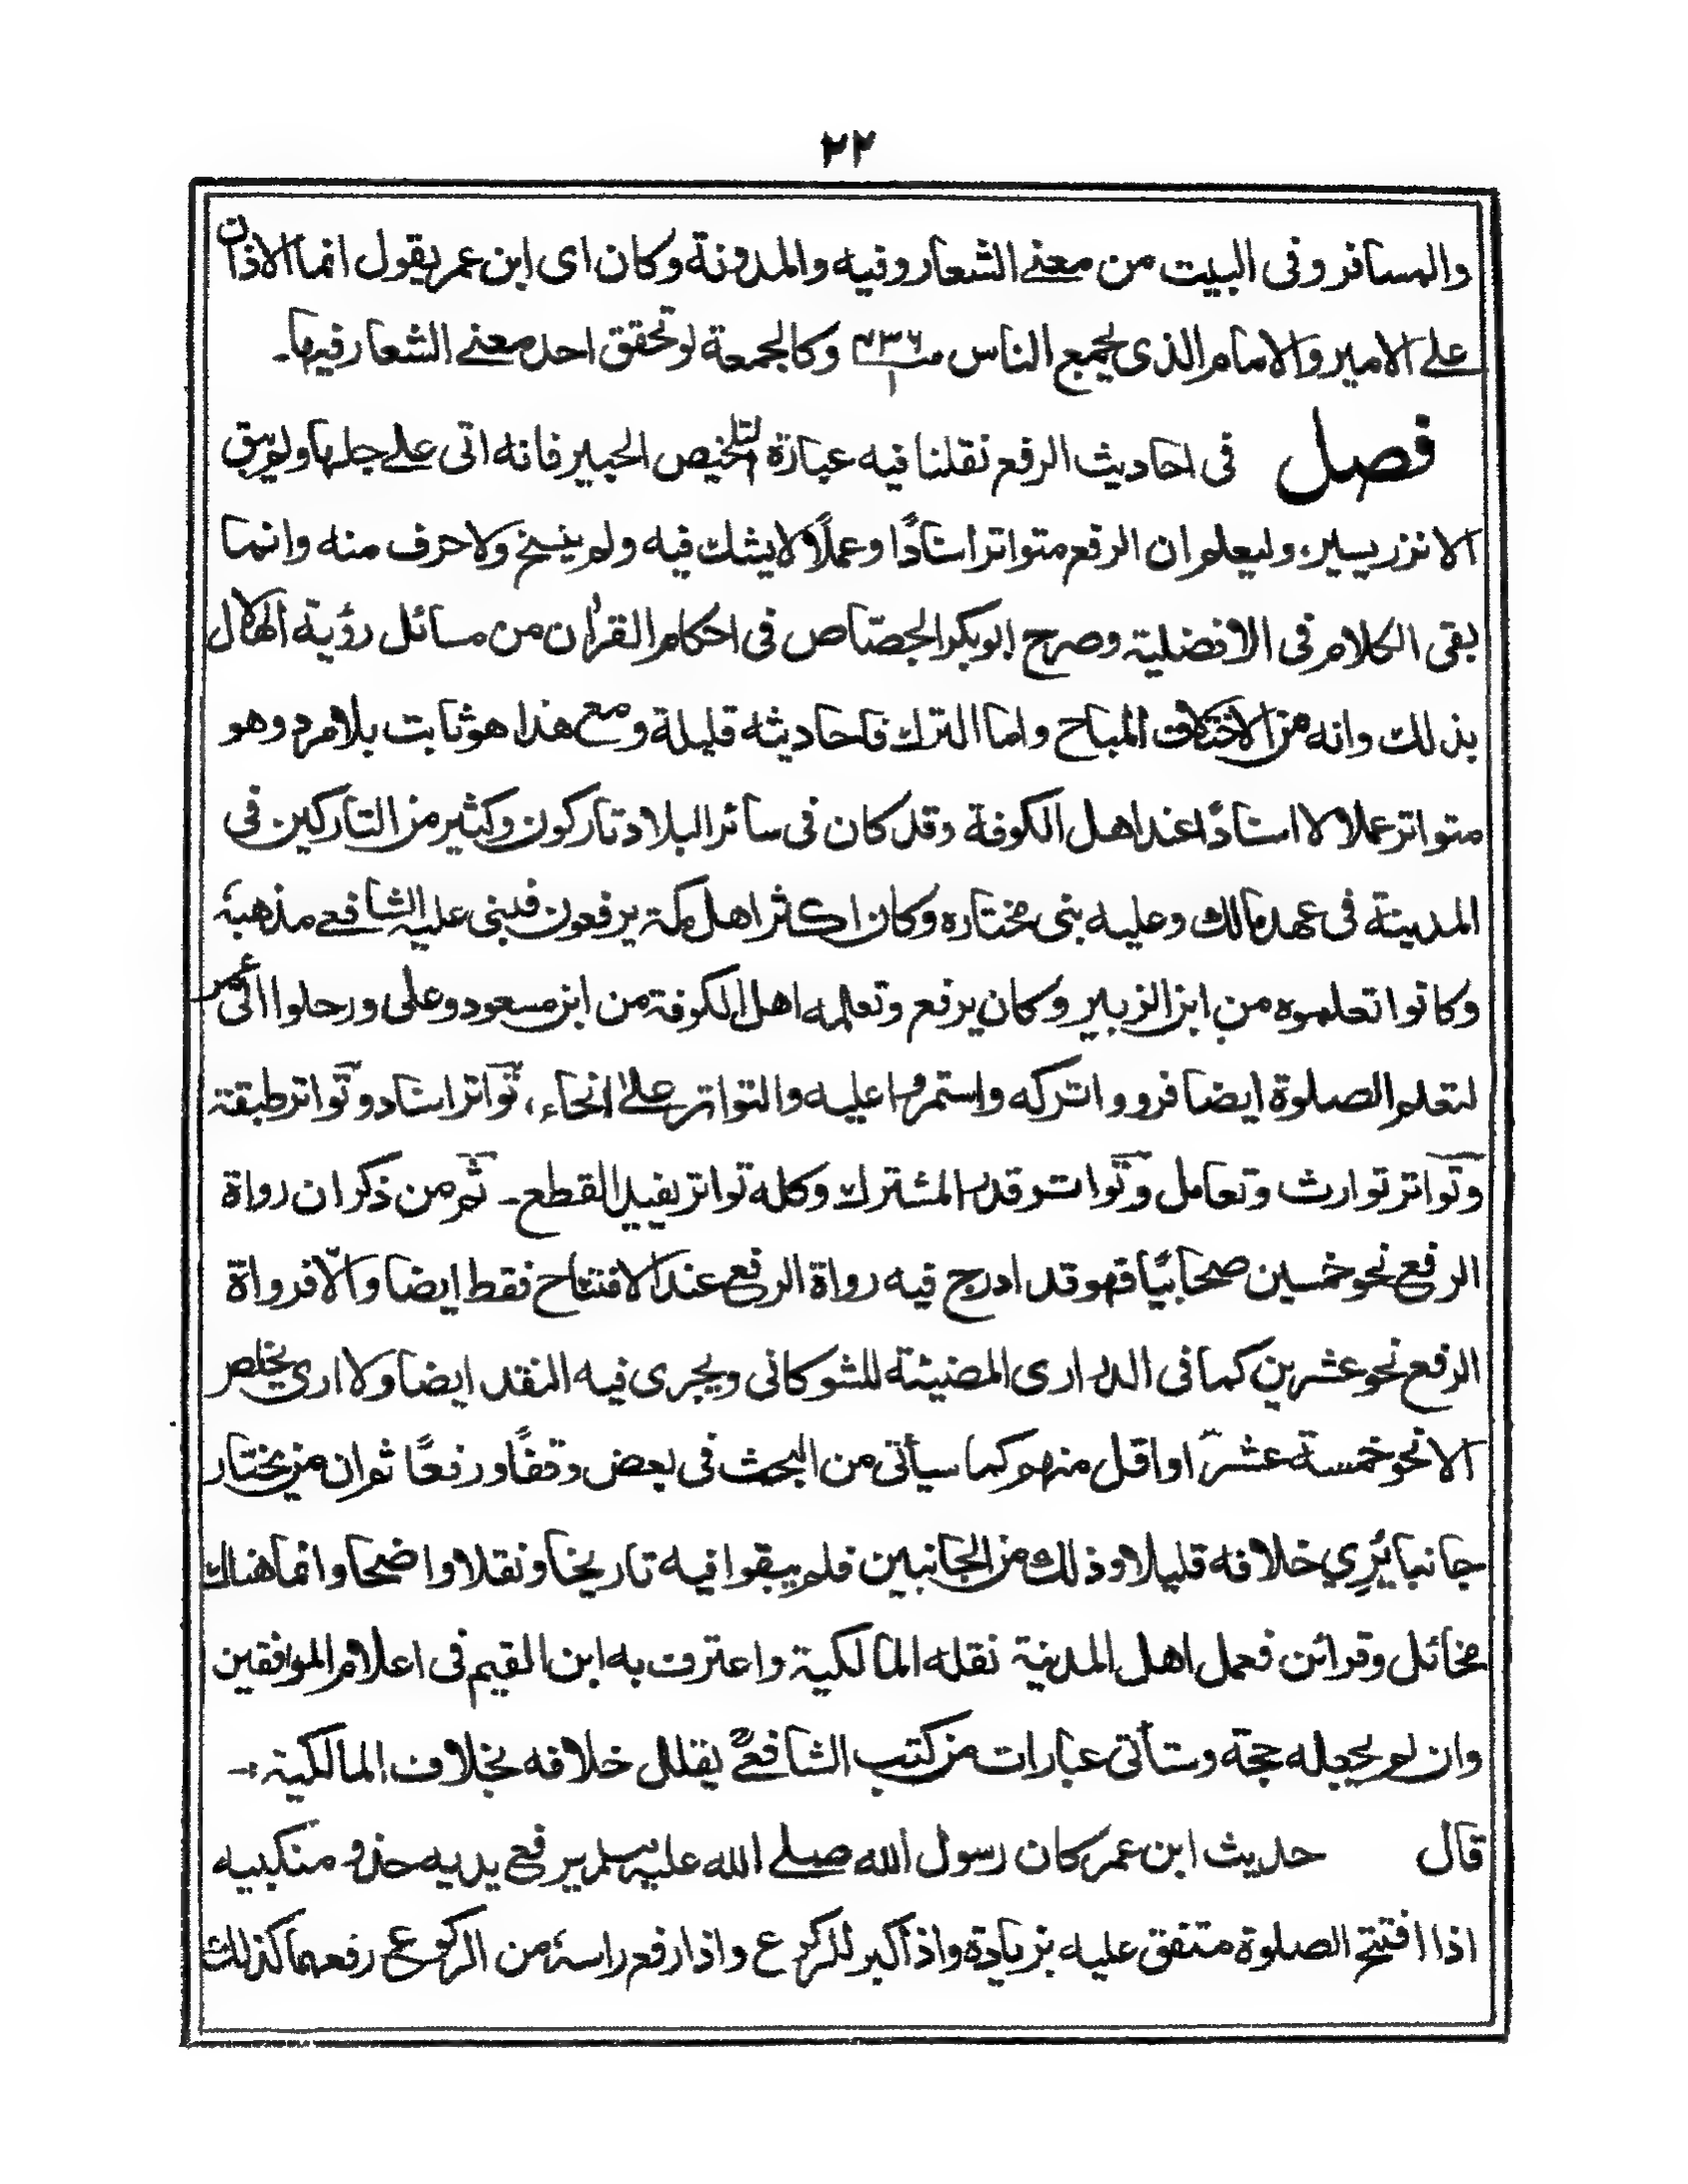 ٢٢
والمسافر وفى البيت من معنے الشعار وفيه والمدونة وكان اى ابن عمر يقول انما الاذان
علے الامير والامام الذى يجمع الناس وكالجمعة لو تحقق احد معنے الشعار فيها۔
فصل فى احاديث الرفع نقلنا فيه عبارة التلخيص الحبير فانه اتى علے جلها ولم يبق
الا نزر يسير، وليعلم ان الرفع متواتر اسنادًا وعملًا لا يشك فيه ولم ينسخ ولا حرف منه وانما
بقى الكلام فى الافضلية وصرح ابو بكر الجصاص فى احكام القرأن من مسائل رؤية الهلال
بذلك وانه من الاختلاف المباح واما الترك فاحاديثه قليلة ومع هذا هو ثابت بلا مرد وهو
متواتر عملا لا اسنادًا عند اهل الكوفة وقد كان فى سائر البلاد تاركون وكثير من التاركين فى
المدينة فى عهد مالك وعليه بنى مختاره وكان اكثر اهل مكة يرفعون فبنى عليه الشافعے مذهبه
وكانوا تعلموه من ابن الزبير وكان يرفع وتعلمه اهل الكوفة من ابن مسعود وعلى ورحلوا الى عمر
لتعلم الصلوة ايضا فرووا تركه واستمروا عليه والتواتر علے انحاء، تواتر اسناد وتواتر طبقة
وتواتر توارث وتعامل وتواتر قدر المشترك وكله تواتر يفيد القطع۔ ثم من ذكر ان رواة
الرفع نحو خمسين صحابيًا فهو قد ادرج فيه رواة الرفع عند الافتتاح فقط ايضا والّا فرواة
الرفع نحو عشرين كما فى الدرارى المضيئة للشوكانى ويجرى فيه النقد ايضا ولا ارى يخلص
الا نحو خمسة عشر او اقل منهم كما سيأتى من البحث فى بعض وقفًا ورفعًا ثم ان من يختار
جانبا يُرِي خلافه قليلا وذلك من الجانبين فلم يبقوا فيه تاريخا ونقلا واضحا وانما هناك
مخائل وقرائن فعمل اهل المدنية نقله المالكية واعترف به ابن القيم فى اعلام الموافقين
وان لم يجعله حجة وستأتى عبارات من كتب الشافعےؒ يقلل خلافه بخلاف المالكية۔
قال حديث ابن عمر كان رسول الله صلے الله عليه وسلم يرفع يديه حذو منكبيه
اذا افتتح الصلوة متفق عليه بزيادة واذا كبر للركوع واذا رفع راسه من الركوع رفعهما كذلك